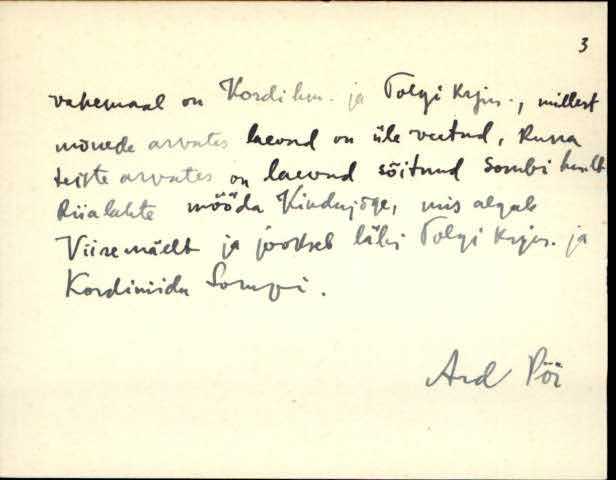 3
vahemaal on Kordi hm. ja Tolgi Krjus., millest
mõnede arvates laevad on üle veetud, kuna
teiste arvates on laevad sõitnud Sombi
Riia lahte mööda Kindujõge, mis algab
Viiremäelt ja jookseb läbi Tolgi Krjus. ja
Kordiniidu Sompi.
Ard Pöi